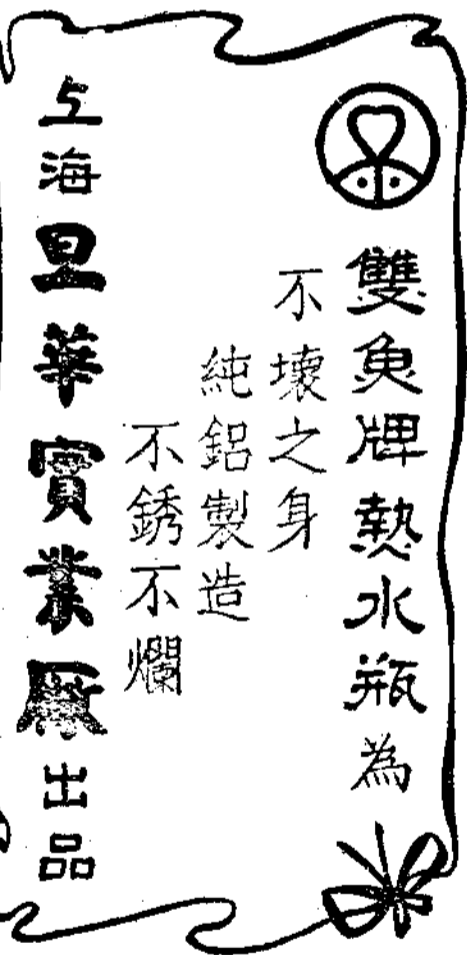 雙魚牌熱水瓶為
不壞之身
純鋁製造
不銹不爛
上海旦華實業厰出品